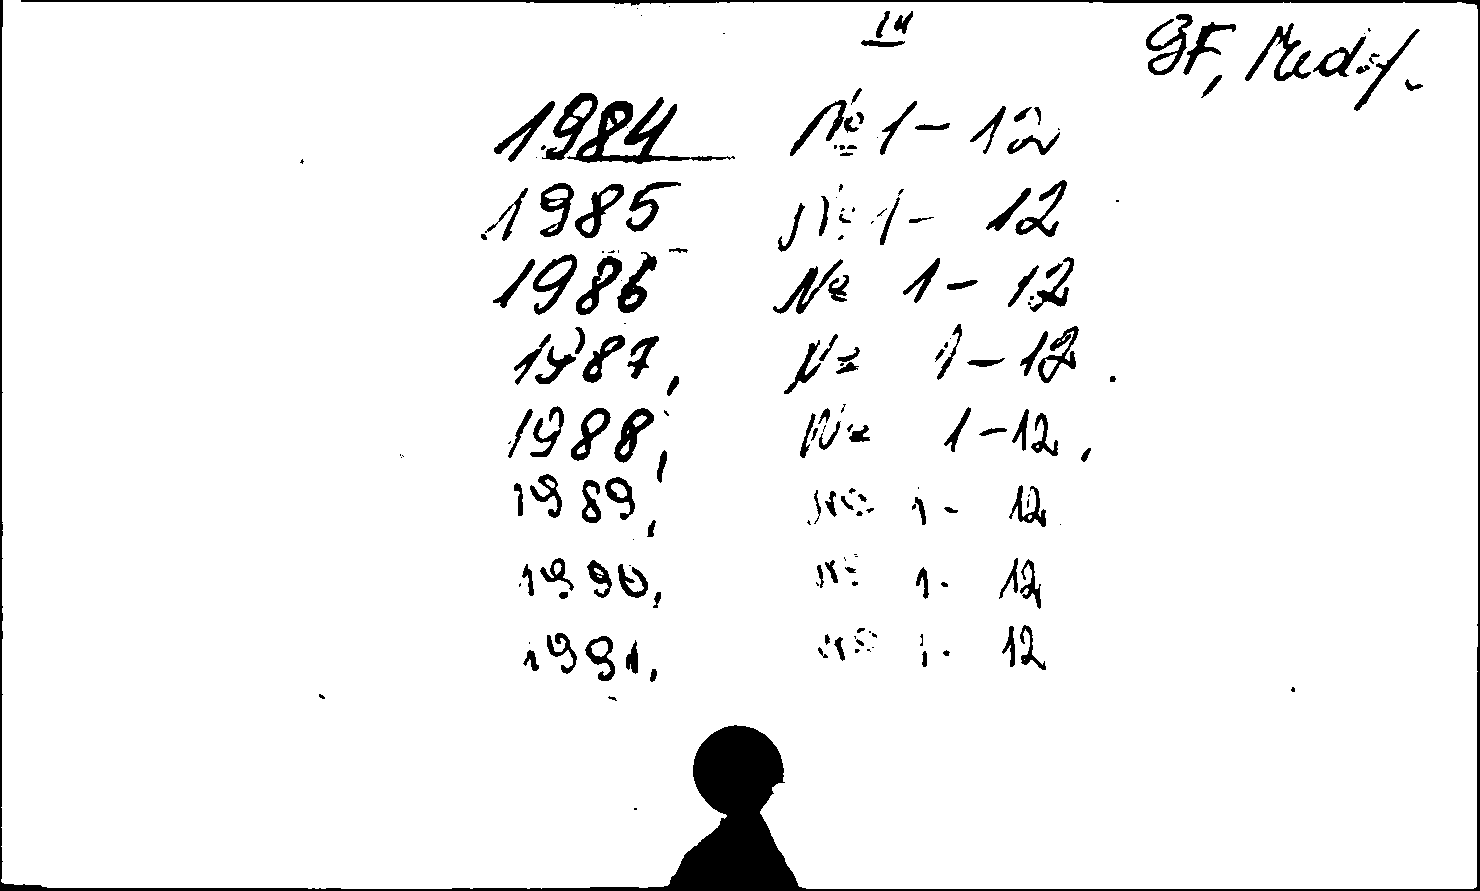 GF,
1984 № 1 - 12
1985 № 1 - 12
1986 № 1 - 12
1987, № 1 - 12.
1988, № 1 - 12,
1989, № 1 - 12
1990, № 1 - 12
1991, № 1 - 12